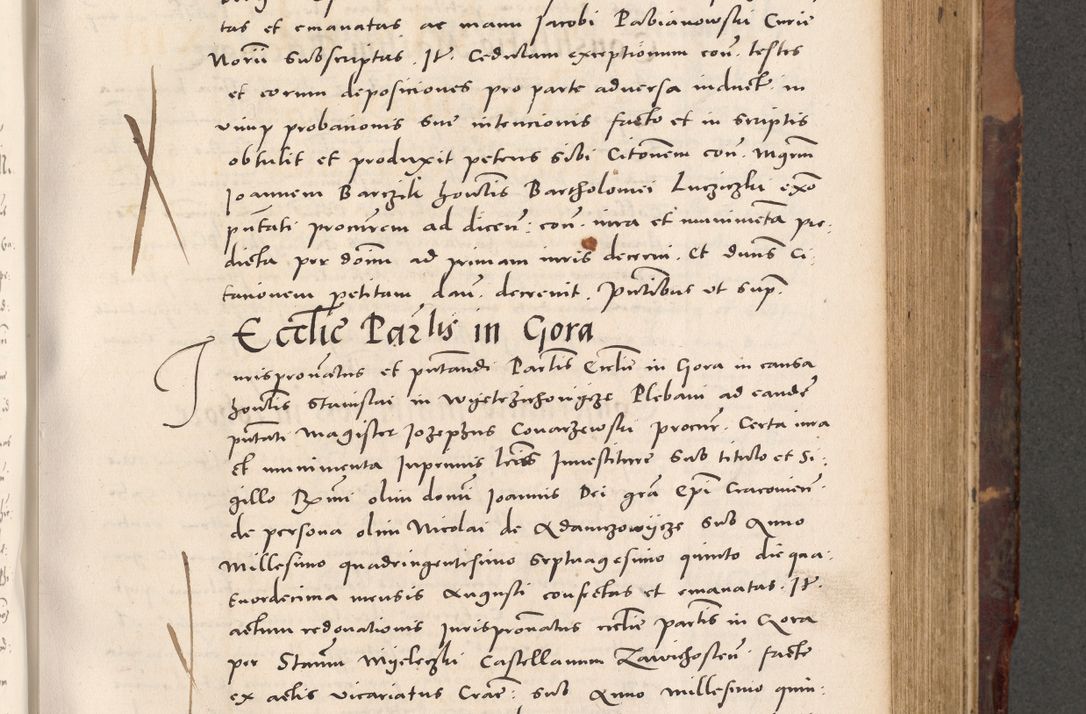 tas et emanatas ac manu Jacobi Pabianowski Curie
Norii Subscriptas. Jt. Cedulam exceptionum con. testes
et eorum deposiciones pro parte adversa induct. in
vimp probationis sue intencionis facte et in scriptis
obtulit et produxit petens sibi Citonem con. Mgrm
Joannem Barczik honstis Bartholomei Lucziczki exo
putati procurem ad dicen: con. iura et munimeta pre
dicta per domi ad primam iuris decerni. Et duns Ci
tationem petitam dan. decrevit. Pntibus ut sup.
Ecclie Parlis in Gora
Jurispronatus et putandi Parlis Ecclie in Gora in causa
honstis Stanislai in Wyetrzichowycze Plebani ad eande
putati Magister Jozephus Conarzewski procur. Certa iura
et munimenta Inprimis lras Investiture Sub titulo et Si
gillo Rmi olim domi Joannis Dei gra Epi Cracovien
de persona olim Nicolai de Adamczowycze sub Anno
Millesimo quadringentesimo septuagesimo quinto die qua
tuordecima mensis Augusti confectas et emanatas. Jt.
actum redonationis Jurispronatus ecclie partis in Gora
per Stanm Myeleczki Castellanum Zawichosten. facte
ex actis vicariatus Crac: sub Anno Millesimo quin